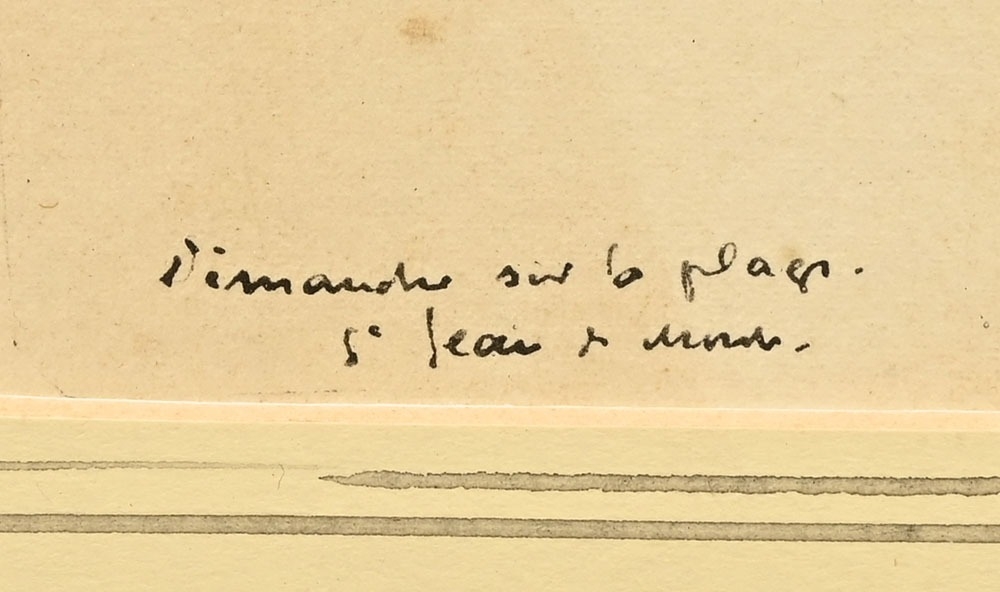 Dimanche sur la plage.
St Jean de Monts.